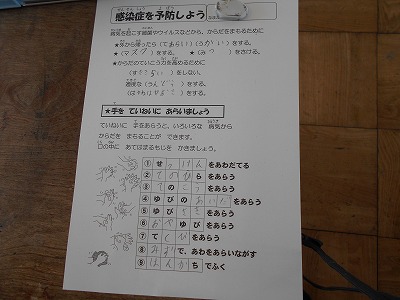 感染症を予防しよう
病気を起こす細菌やウイルスなどから、からだをまもるために
★外から帰ったら(てあらい)(うがい)をする。
★(マスク)をする。 ★( )をさける。
★からだのていこう力を高めるために
( )をしない。
適度な(うんどう)をする。
( )をする。
★手を ていねいに あらいましょう
ていねいに 手をあらうと、いろいろな 病気から
からだを まもることが できます。
口の中に あてはまるもじを かきましょう。
① せっけん をあわだてる
② てのひら をあらう
③ てのこう をあらう
④ ゆびのあいだ をあらう
⑤ ゆびさき をあらう
⑥ おやゆび をあらう
⑦ てくび をあらう
⑧ みず で、あわをあらいながす
⑨ はんかち でふく